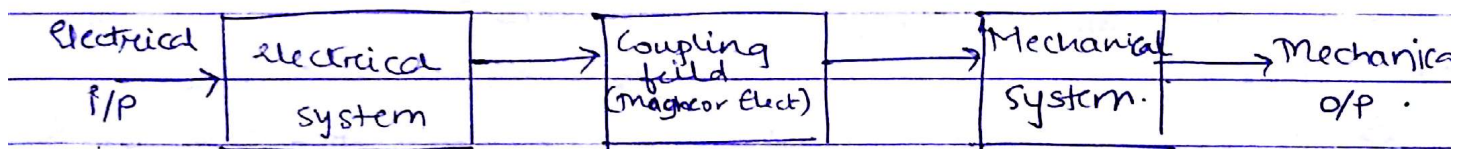 Electrical
i/p
electrical
system
Coupling
feild
(Mag or Elect)
Mechanical
system.
Mechanica
O/P .